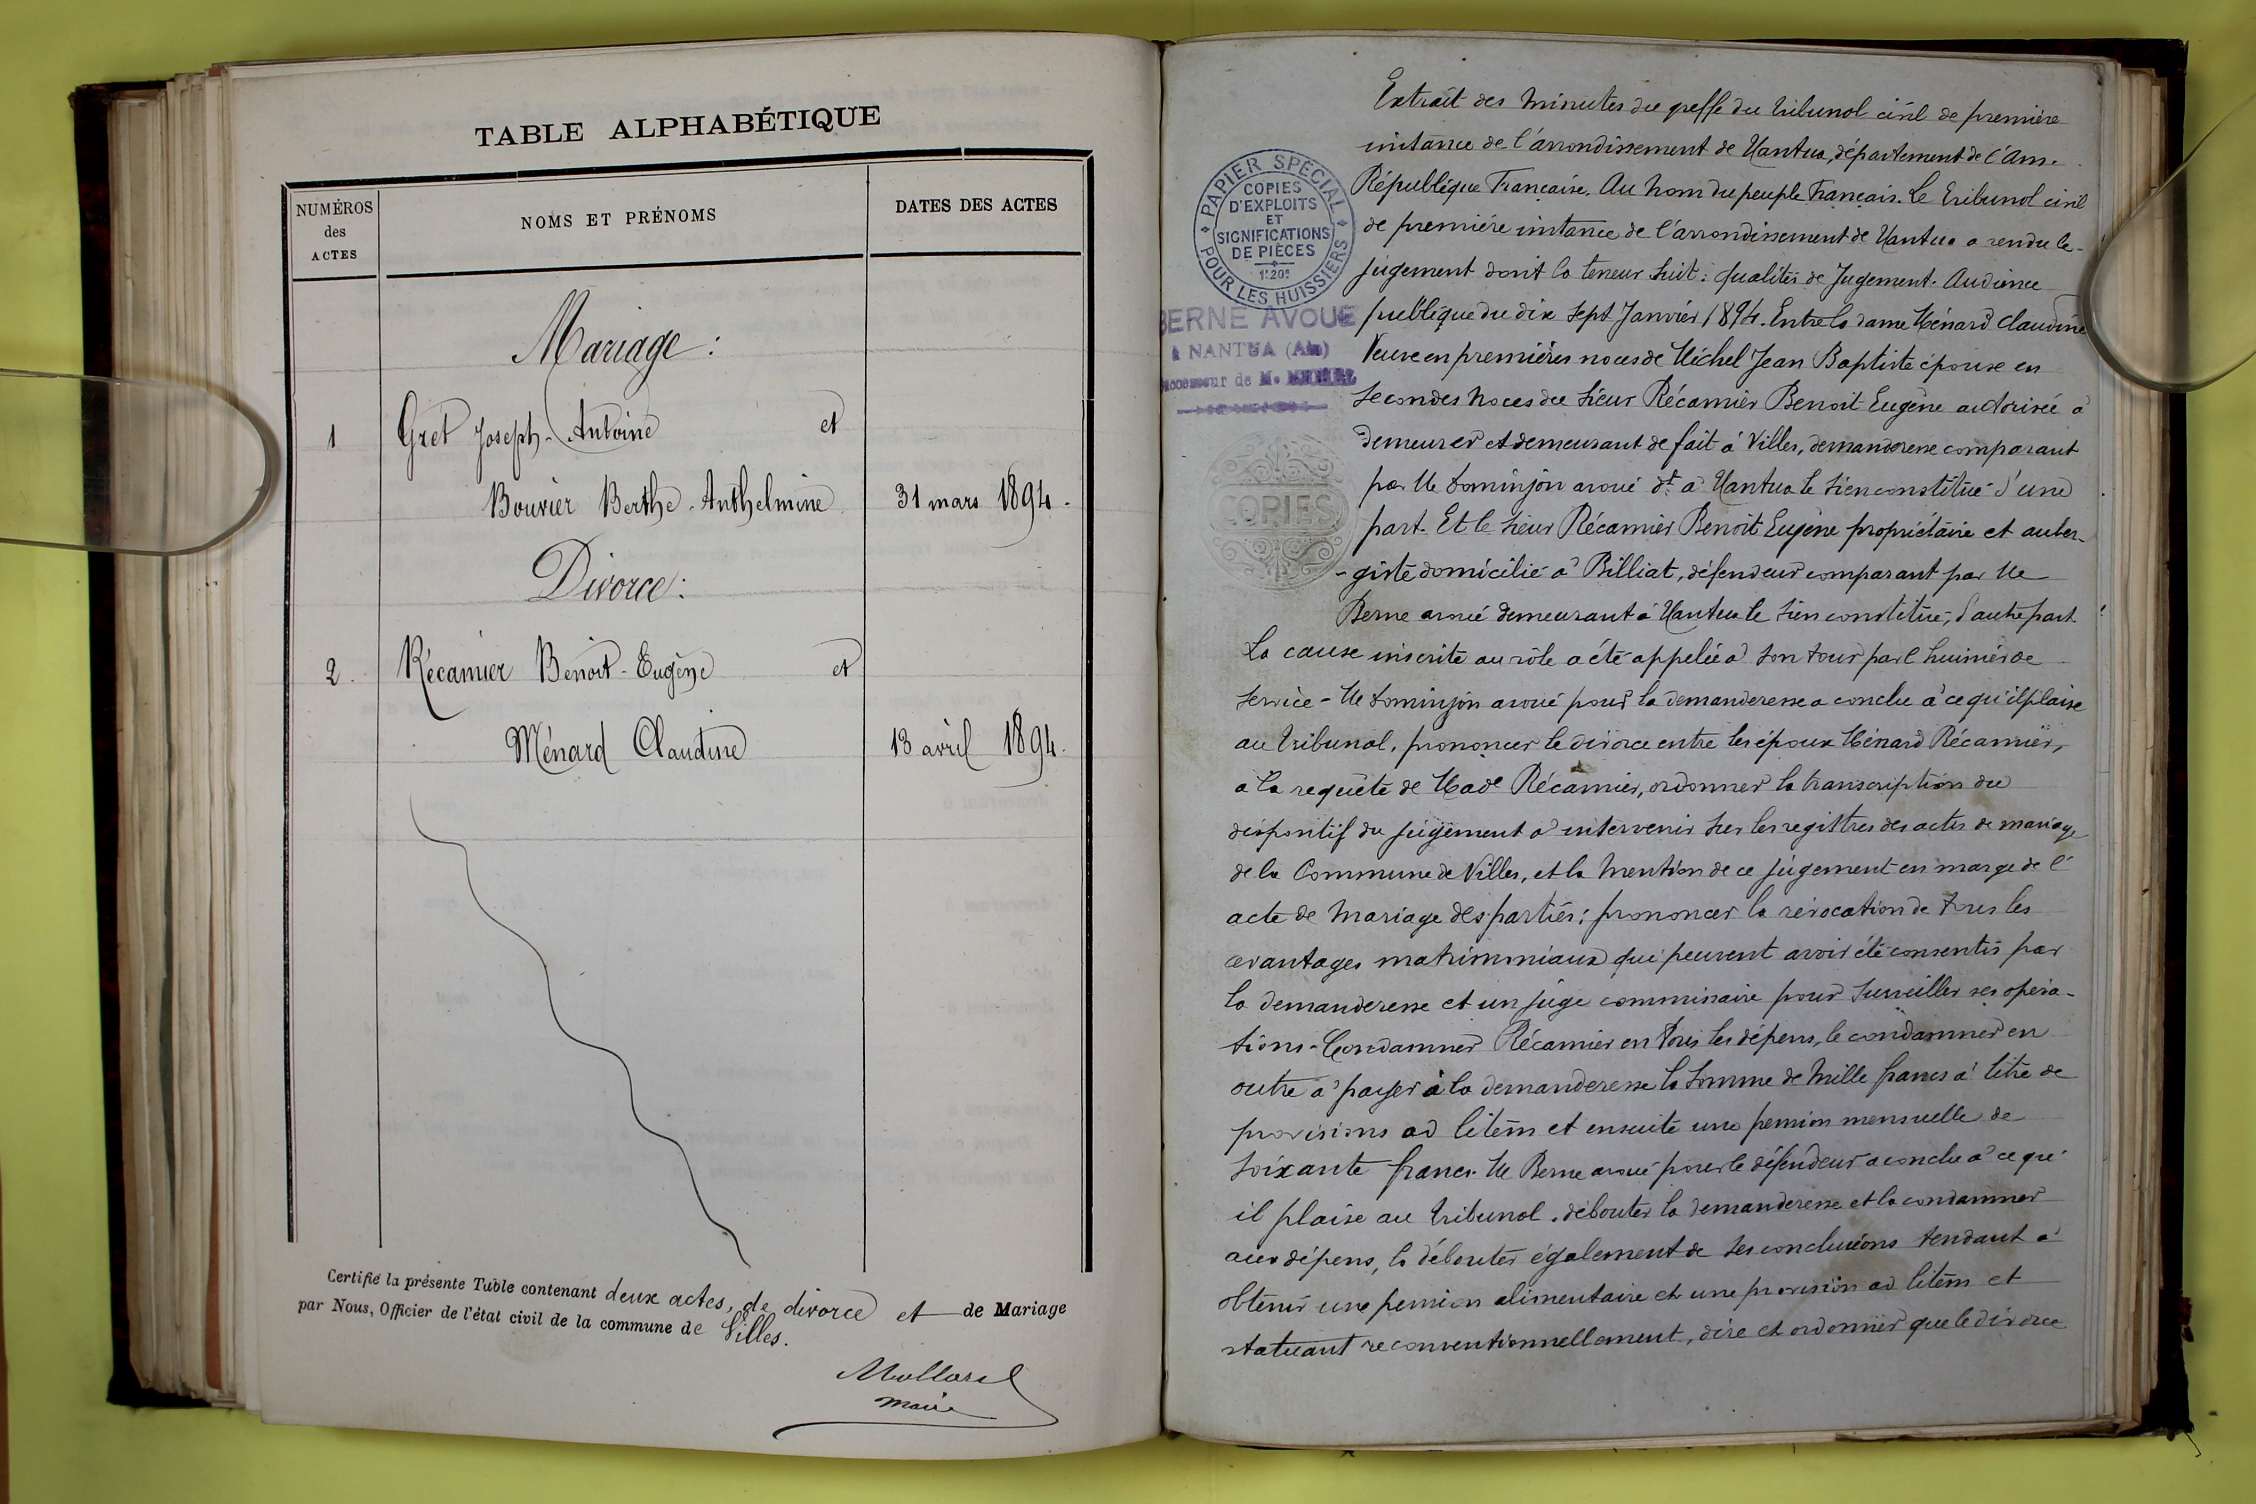 TABLE ALPHABÉTIQUE
NUMÉROS
des
ACTES
NOMS ET PRÉNOMS
DATES DES ACTES
Mariage :
1 Gret Joseph-Antoine et
Bouvier Berthe-Anthelmine 31 mars 1894.
Divorce :
2. Récamier Benoit-Eugène et
Ménard Claudine 13 avril 1894.
Certifié la présente Table contenant deux actes, de divorce et de Mariage
par Nous, Officier de l'état civil de la commune de Villes.
Mollard
maire
PAPIER SPÉCIAL
POUR LES HUISSIERS
COPIES
D'EXPLOITS
ET
SIGNIFICATIONS
DE PIÈCES
BERNE AVOUÉ
à NANTUA (Ain)
Successeur de Me
COPIES
Extrait des minutes du greffe du tribunal civil de première
instance de l'arrondissement de Nantua, département de l'Ain.
République Française. Au nom du peuple Français. Le tribunal civil
de première instance de l'arrondissement de Nantua a rendu le
jugement dont la teneur suit : Qualités de Jugement. Audience
publique du dix sept Janvier 1894. Entre la dame Ménard Claudine
Veuve en premières noces de Michel Jean Baptiste épouse en
secondes noces du sieur Récamier Benoit Eugène autorisée à
demeurer et demeurant de fait à Villes, demanderesse comparant
par Me Dominjon avoué dt à Nantua le sien constitué d'une
part. Et le sieur Récamier Benoit Eugène propriétaire et auber-
-giste domicilié à Billiat, défendeur comparant par Me
Berne avoué demeurant à Nantua le sien constitué, d'autre part.
La cause inscrite au rôle a été appelée à son tour par l'huissier de
service - Me Dominjon avoué pour la demanderesse a conclu à ce qu'il plaise
au tribunal, prononcer le divorce entre les époux Ménard Récamier,
à la requête de Made Récamier, ordonner la transcription du
dispositif du jugement à intervenir sur les registres des actes de mariage
de la Commune de Villes, et la mention de ce jugement en marge de l'
acte de mariage des parties ; prononcer la révocation de tous les
avantages matrimoniaux qui peuvent avoir été consentis par
la demanderesse et un juge commissaire pour surveiller ses opéra-
tions - Condamner Récamier en tous les dépens, le condamner en
outre à payer à la demanderesse la somme de mille francs à titre de
provisions ad litem et ensuite une pension mensuelle de
soixante francs. Me Berne avoué pour le défendeur a conclu à ce qu'
il plaise au tribunal. débouter la demanderesse et la condamner
aux dépens, la débouter également de ses conclusions tendant à
obtenir une pension alimentaire et une provision ad litem et
statuant reconventionnellement, dire et ordonner que le divorce